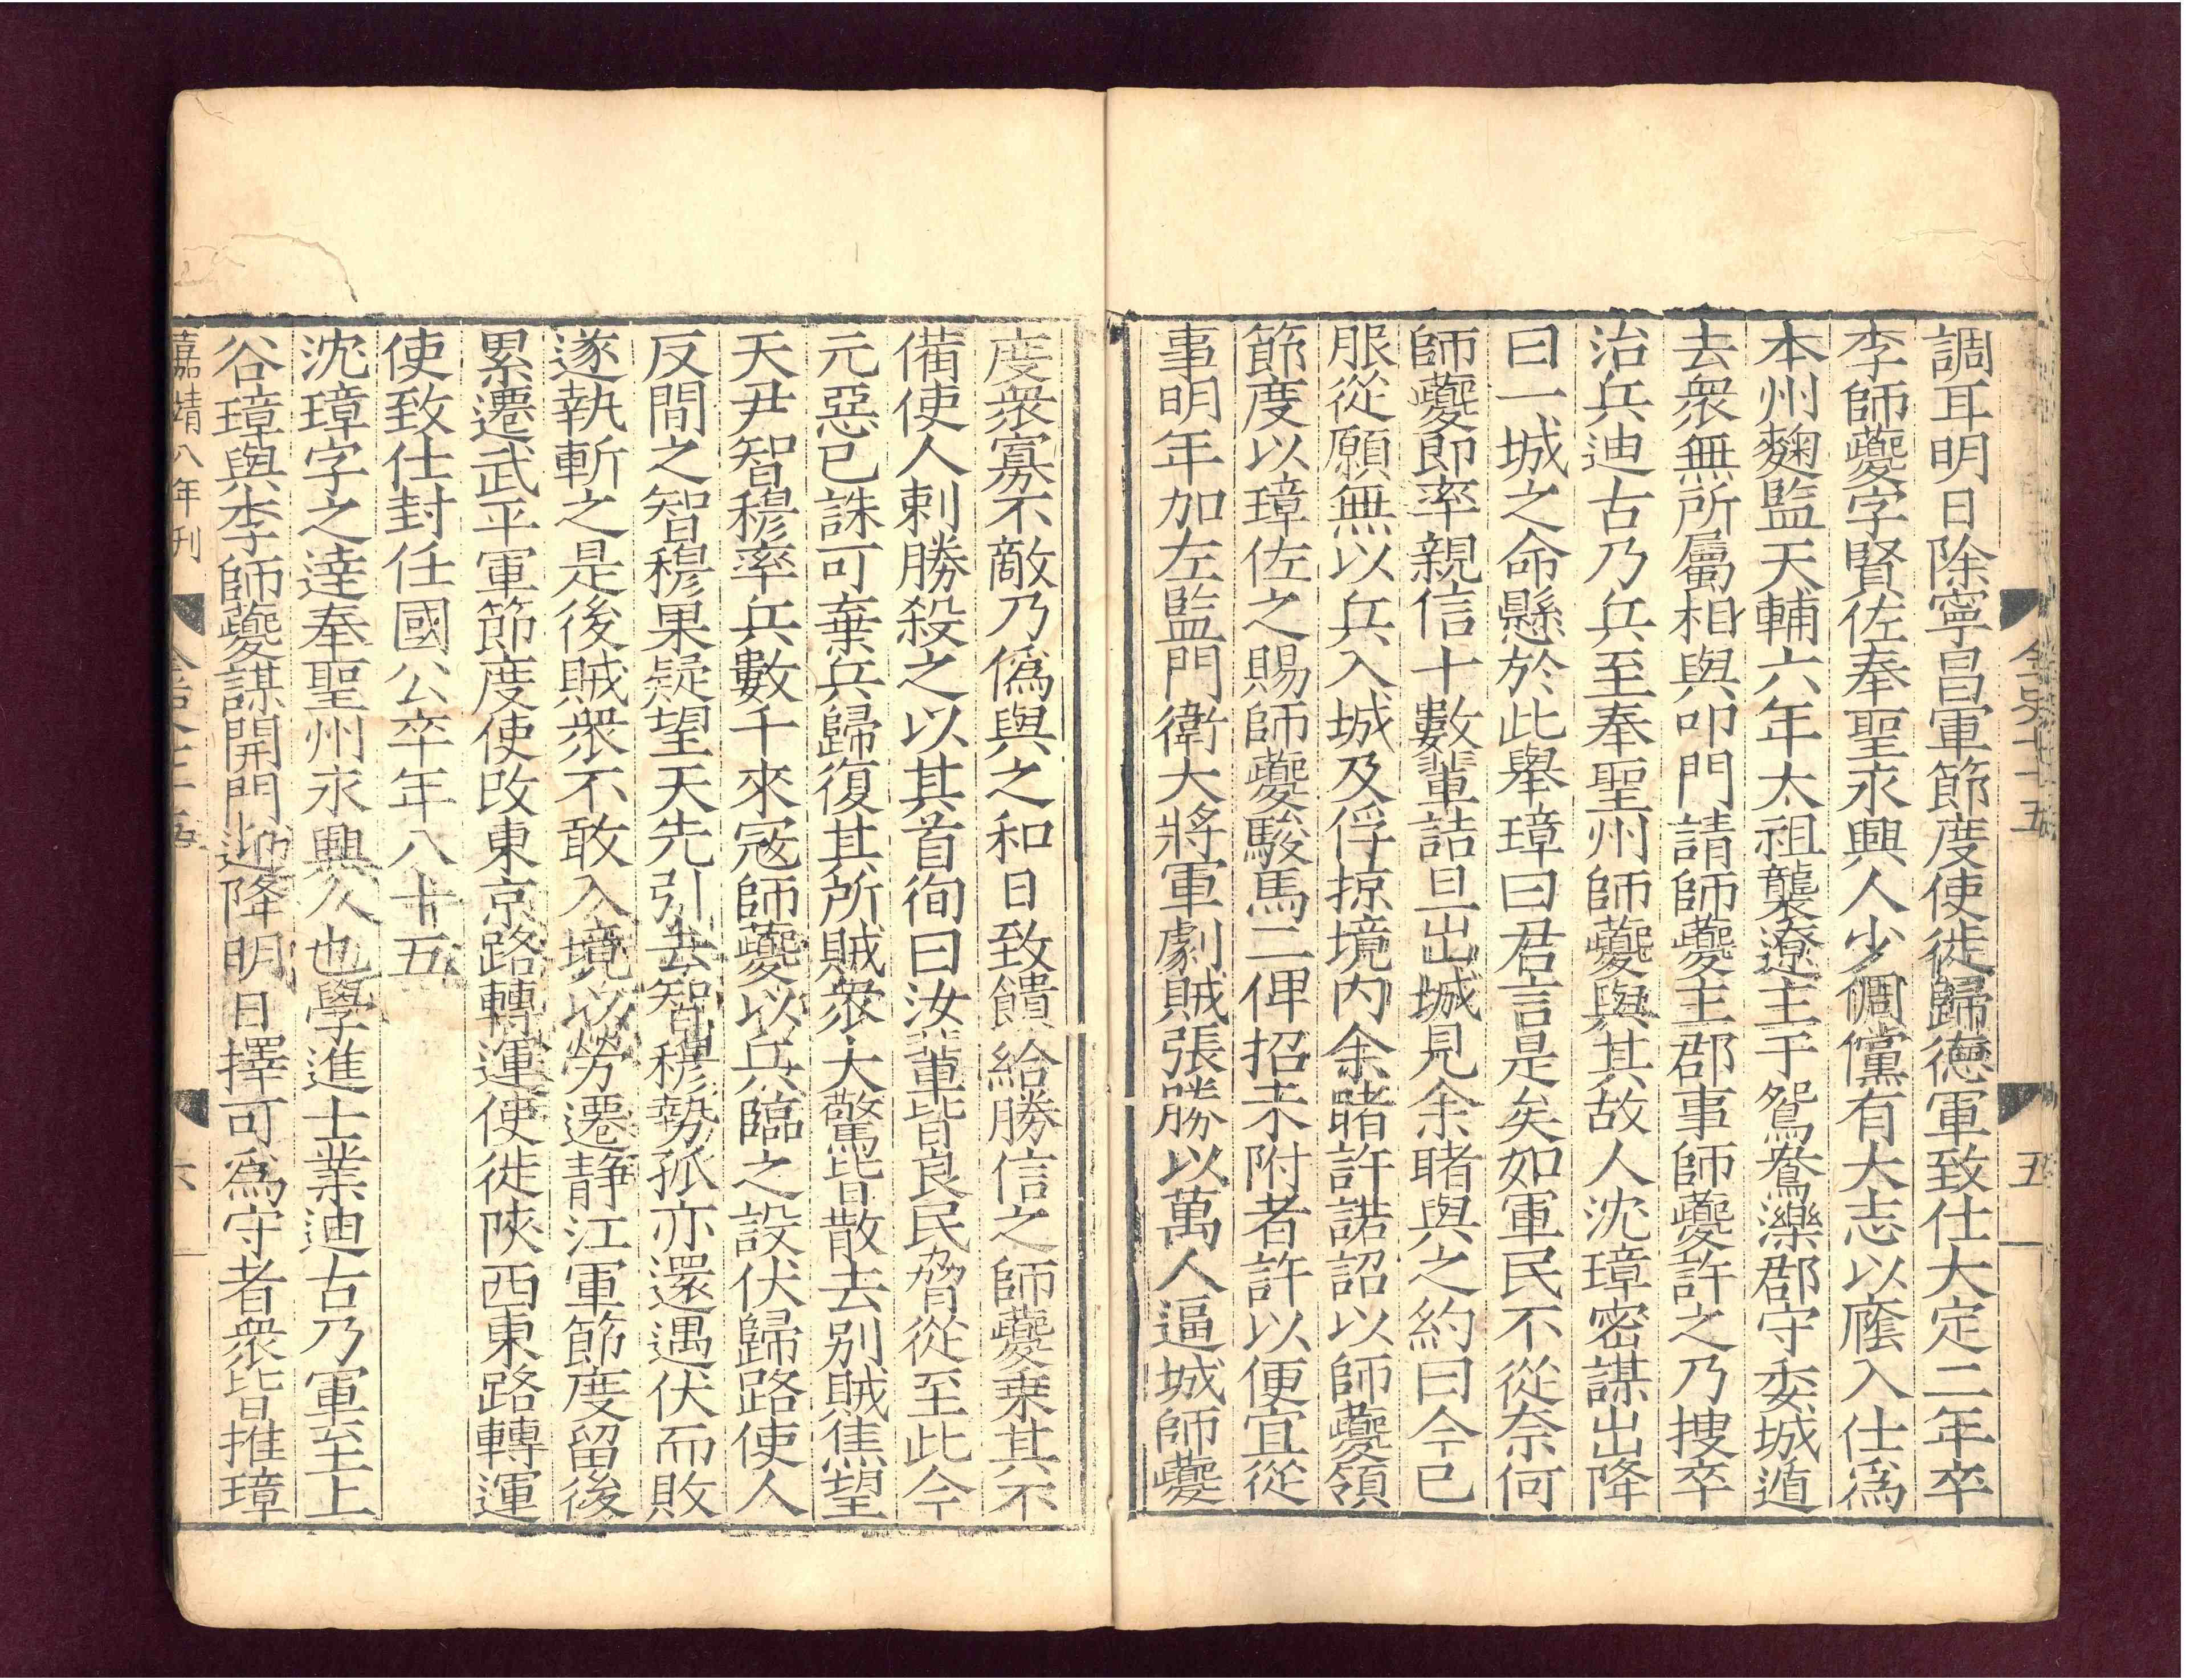 金史七十五
五
調耳明日除寧昌軍節度使徙歸德軍致仕大定二年卒
李師夔字賢佐奉聖永興人少倜儻有大志以廕入仕爲
本州麴監天輔六年太祖襲遼主于鴛鴦濼郡守委城遁
去衆無所屬相與叩門請師夔主郡事師夔許之乃搜卒
治兵迪古乃兵至奉聖州師夔與其故人沈璋密謀出降
曰一城之命懸於此舉璋曰君言是矣如軍民不從奈何
師夔即率親信十數輩詰旦出城見余睹與之約曰今已
服從願無以兵入城及俘掠境内余睹許諾詔以師夔領
節度以璋佐之賜師夔駿馬二俾招未附者許以便宜從
事明年加左監門衛大將軍劇賊張勝以萬人逼城師夔
度衆寡不敵乃僞與之和日致饋給勝信之師夔乗其不
備使人刺勝殺之以其首徇曰汝輩皆良民脅從至此今
元惡已誅可棄兵歸復其所賊衆大驚皆散去别賊焦望
天尹智穆率兵數千來冦師夔以兵臨之設伏歸路使人
反間之智穆果疑望天先引去智穆勢孤亦還遇伏而敗
遂執斬之是後賊衆不敢入境以勞遷静江軍節度留後
累遷武平軍節度使改東京路轉運使徙陝西東路轉運
使致仕封任國公卒年八十五
沈璋字之達奉聖州永興人也學進士業迪古乃軍至上
谷璋與李師夔謀開門迎降明日擇可爲守者衆皆推璋
嘉靖八年刊
金史七十五
六